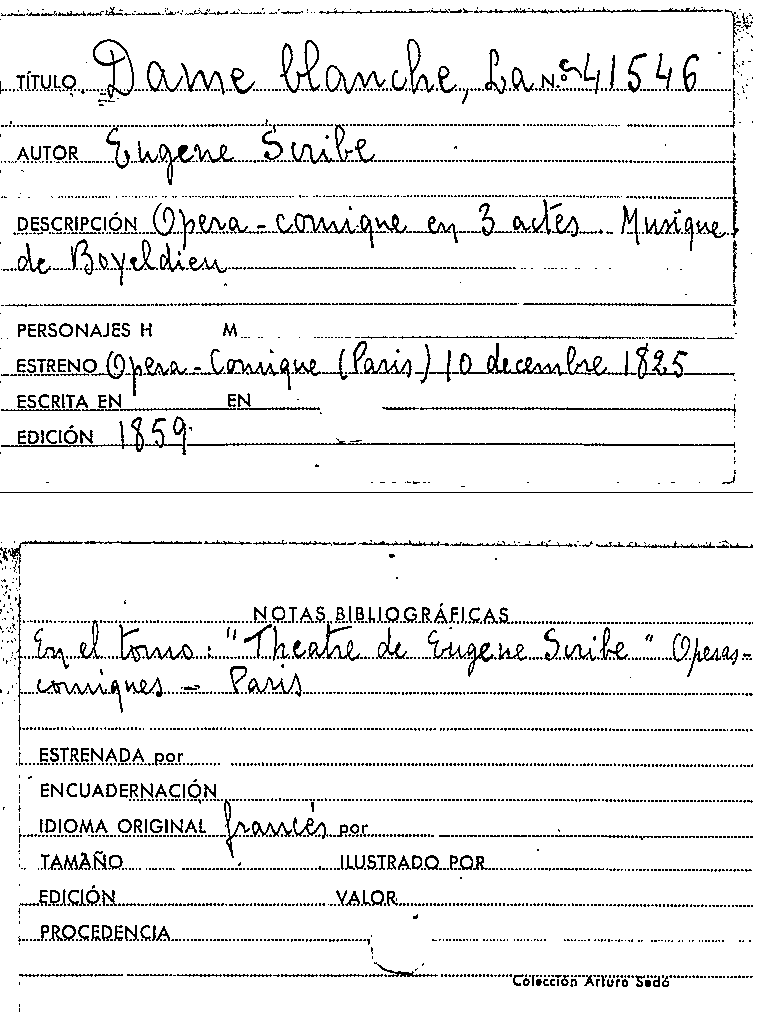 TÍTULO Dame blanche, La N.º 41546
AUTOR Eugene Scribe
DESCRIPCIÓN Opera-comique en 3 actes. Musique
de Boyeldieu
PERSONAJES H M
ESTRENO Opera-Comique (Paris) 10 decembre 1825
ESCRITA EN EN
EDICIÓN 1859
NOTAS BIBLIOGRÁFICAS
En el tomo: "Theatre de Eugene Scribe" Operas-
comiques - Paris
ESTRENADA por
ENCUADERNACIÓN
IDIOMA ORIGINAL francés por
TAMAÑO ILUSTRADO POR
EDICIÓN VALOR
PROCEDENCIA
Colección Arturo Sedó